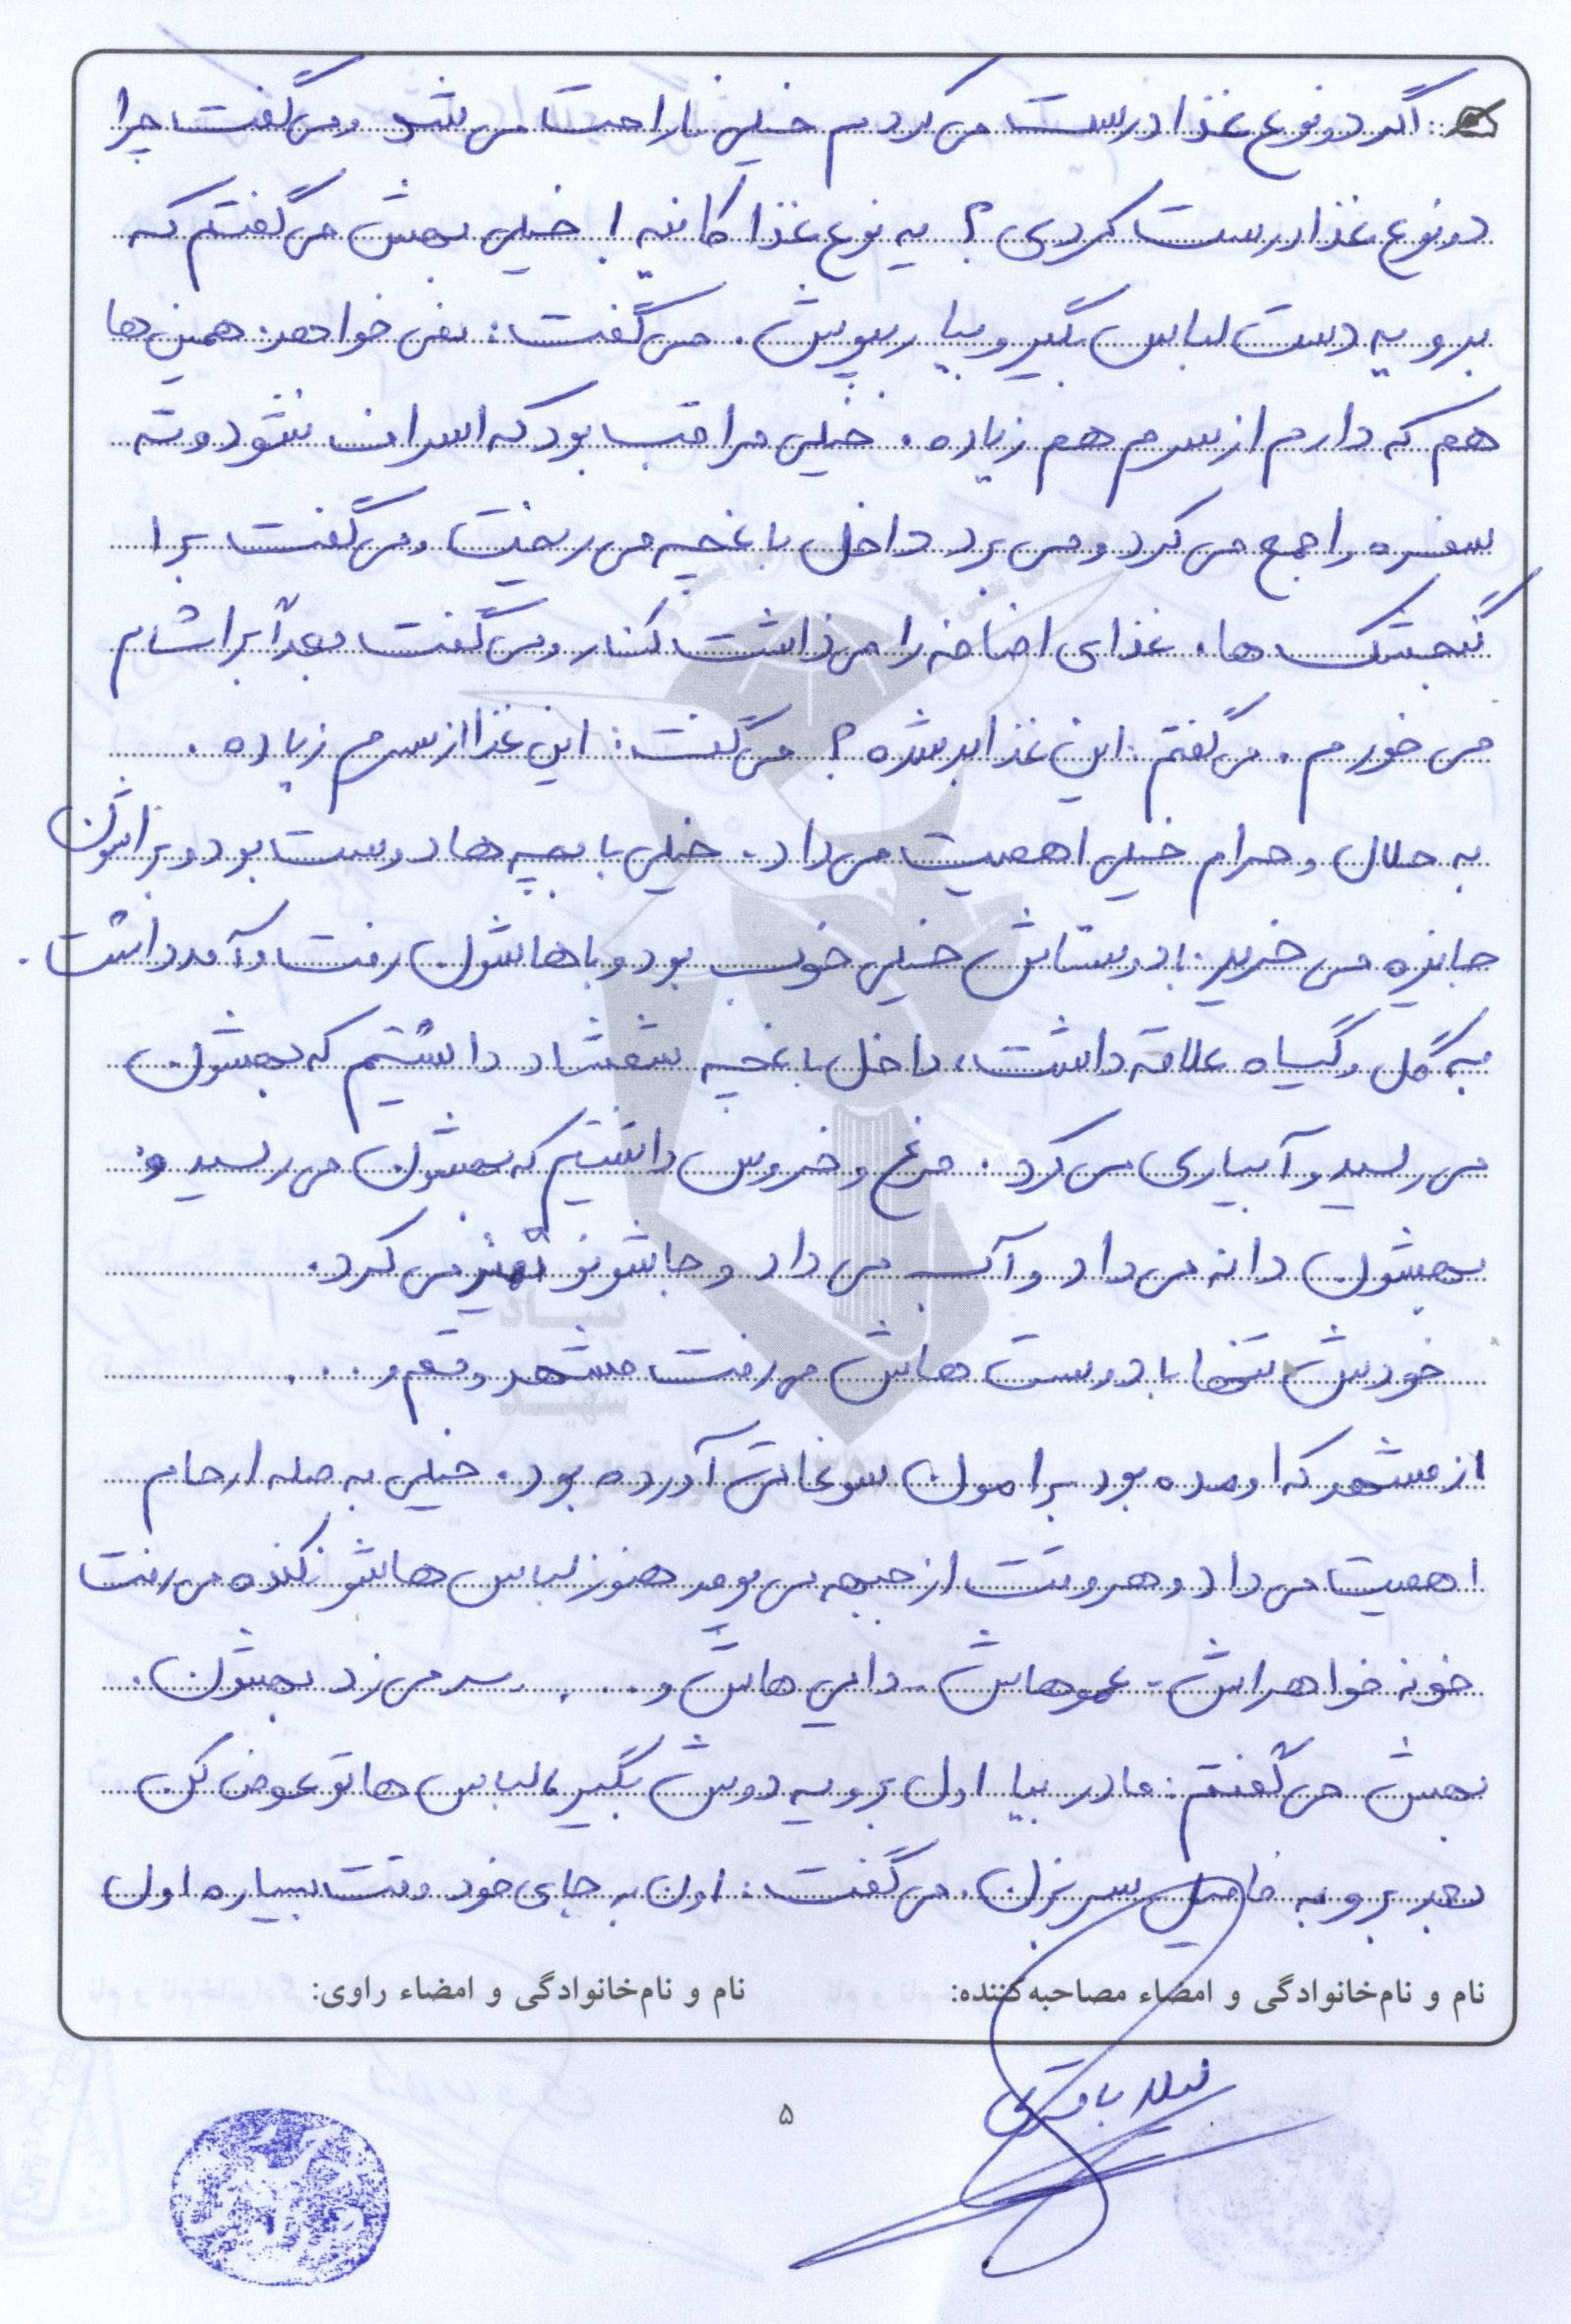 اگر دو نوع غذا درست می کردم خیلی ناراحت می شد و می گفت چرا
دو نوع غذا درست کردی؟ یه نوع غذا کافیه! خیلی بهش می گفتم که
برو یه دست لباس بگیر و بیار بپوش. می گفت: نمی خواهد. همین ها
هم که دارم از سرم هم زیاده. خیلی مراقب بود که اسراف نشود و ته
سفره را جمع می کرد و می برد داخل باغچه می ریخت و می گفت برا
گنجشک ها. غذای اضافه را می ذاشت کنار و می گفت بعداً برا شام
می خورم. می گفتم: این غذا بد شده؟ می گفت: این غذا از سرم زیاده.
به حلال و حرام خیلی اهمیت می داد. خیلی با بچه ها دوست بود و براشون
جایزه می خرید. با دوستاش خیلی خوب بود و باهاشون رفت و آمد داشت.
به گل و گیاه علاقه داشت، داخل باغچه شمشاد داشتیم که بهشون
می رسید و آبیاری می کرد. مرغ و خروس داشتیم که بهشون می رسید و
بهشون دانه می داد و آب می داد و جاشونو تمیز می کرد.
خودش تنها با دوست هاش می رفت مشهد و قم و ....
از مشهد که اومده بود برامون سوغاتی آورده بود. خیلی به صله ارحام
اهمیت می داد و هر وقت از جبهه می یومد هنوز لباس هاشو نکنده می رفت
خونه خواهراش - عموهاش - دایی هاش و .... سر می زد بهشون.
بهش می گفتم: مادر بیا اول برو یه دوش بگیر، لباس هاتو عوض کن
بعد برو به فامیل سر بزن. می گفت: اون به جای خود وقت بسیاره اول
نام و نام‌خانوادگی و امضاء مصاحبه‌کننده:
نام و نام‌خانوادگی و امضاء راوی:
۵